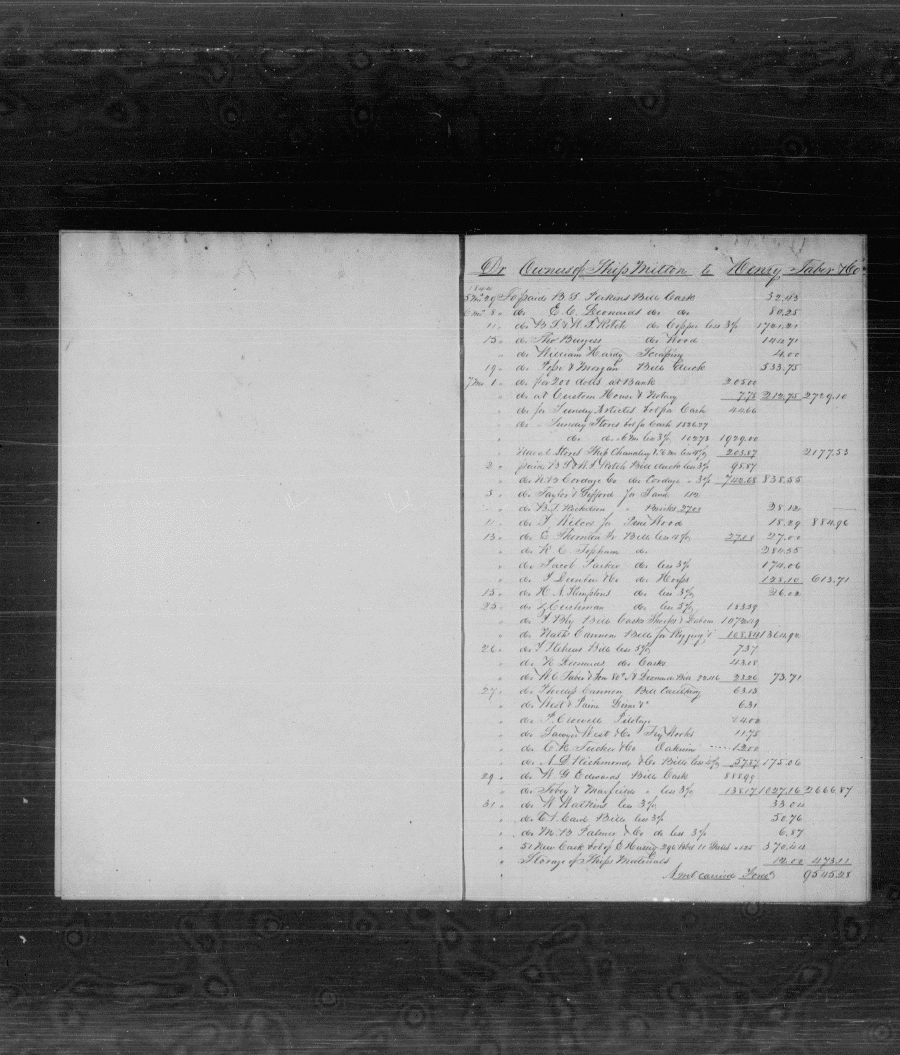 Dr Owners of Ship Milton to Henry Taber & Co
1844
5 Mo 29 To paid B. T. Perkins Bill Cask 32.43
6 Mo 8 " do E. C. Leonards do do 80.25
11 " do B T & R. T. Rotch do Copper less 3% 1721.21
13 " do Tho Burgess do Wood 144.71
" do William Hardy Scraping 4.00
19 " do Pope & Morgan Bills Duck 533.75
7 Mo 1 " do for 200 dolls at Bank 205.00
" do at Custom House & Notary 7.75 212.75 2729.10
" do for Sundry Articles bot for Cash 44.66
" do " Sundry Stores bot for Cash 1826.27
" do do 6 Mo less 3% 102.73 1929.00
" Naval Stores Ship Chandlery & 6 Mo less 4% 203.87 2177.53
2 " paid B T & R. T. Rotch Bill duck less 3% 95.87
" do N. B Cordage Co do Cordage " 3% 742.68 838.55
8 " do Taylor & Gifford for Sand 1.12
" do B. T. Ricketson " Bricks 27.00 28.12
11 " do T Wilcox for Pine Wood 18.29 884.96
13 " do E Thornton Jr Bill less 4% 27.00 27.00
" do R. C. Topham do 284.55
" do Jacob Parker do less 3% 174.06
" do & Co do Hoops 128.10 613.71
15 " do H. A. Kempton do less 3% 26.02
25 " do Cushman do less 3% 183.39
" do Bly Bill Casks Shooks & Labour 1072.19
" do Nath Cannon Bill for Rigging 108.84 1364.92
26 " do Bill less 3% 7.37
" do N Leonards do Casks 43.18
" do W. C. Taber & Son 80c N Leonard Bill 22.46 23.26 73.71
27 " do Phillip Cannon Bill Caulking 63.13
" do West & Paine 6.31
" do P. Crowell Pilotage 24.00
" do Sawyer West & Co Try Works 11.75
" do C. R. Tucker & Co Oakum 12.00
" do N. D. Richmond & Co Bill less 4% 57.87 175.06
29 " do W. G. Edwards Bill Cask 888.99
" do Tobey & " less 3% 138.17 1027.16 2666.87
31 " do W Watkins less 3% 33.00
" do Bill less 3% 50.76
" do M. B Palmer & Co do less 3% 6.87
" 51 New Cask bot of E Hussey 296 bbls 11 Galls 1.25 370.44
" Storage of Ships Materials 12.00 473.11
" Amt carried Forwd 9545.28